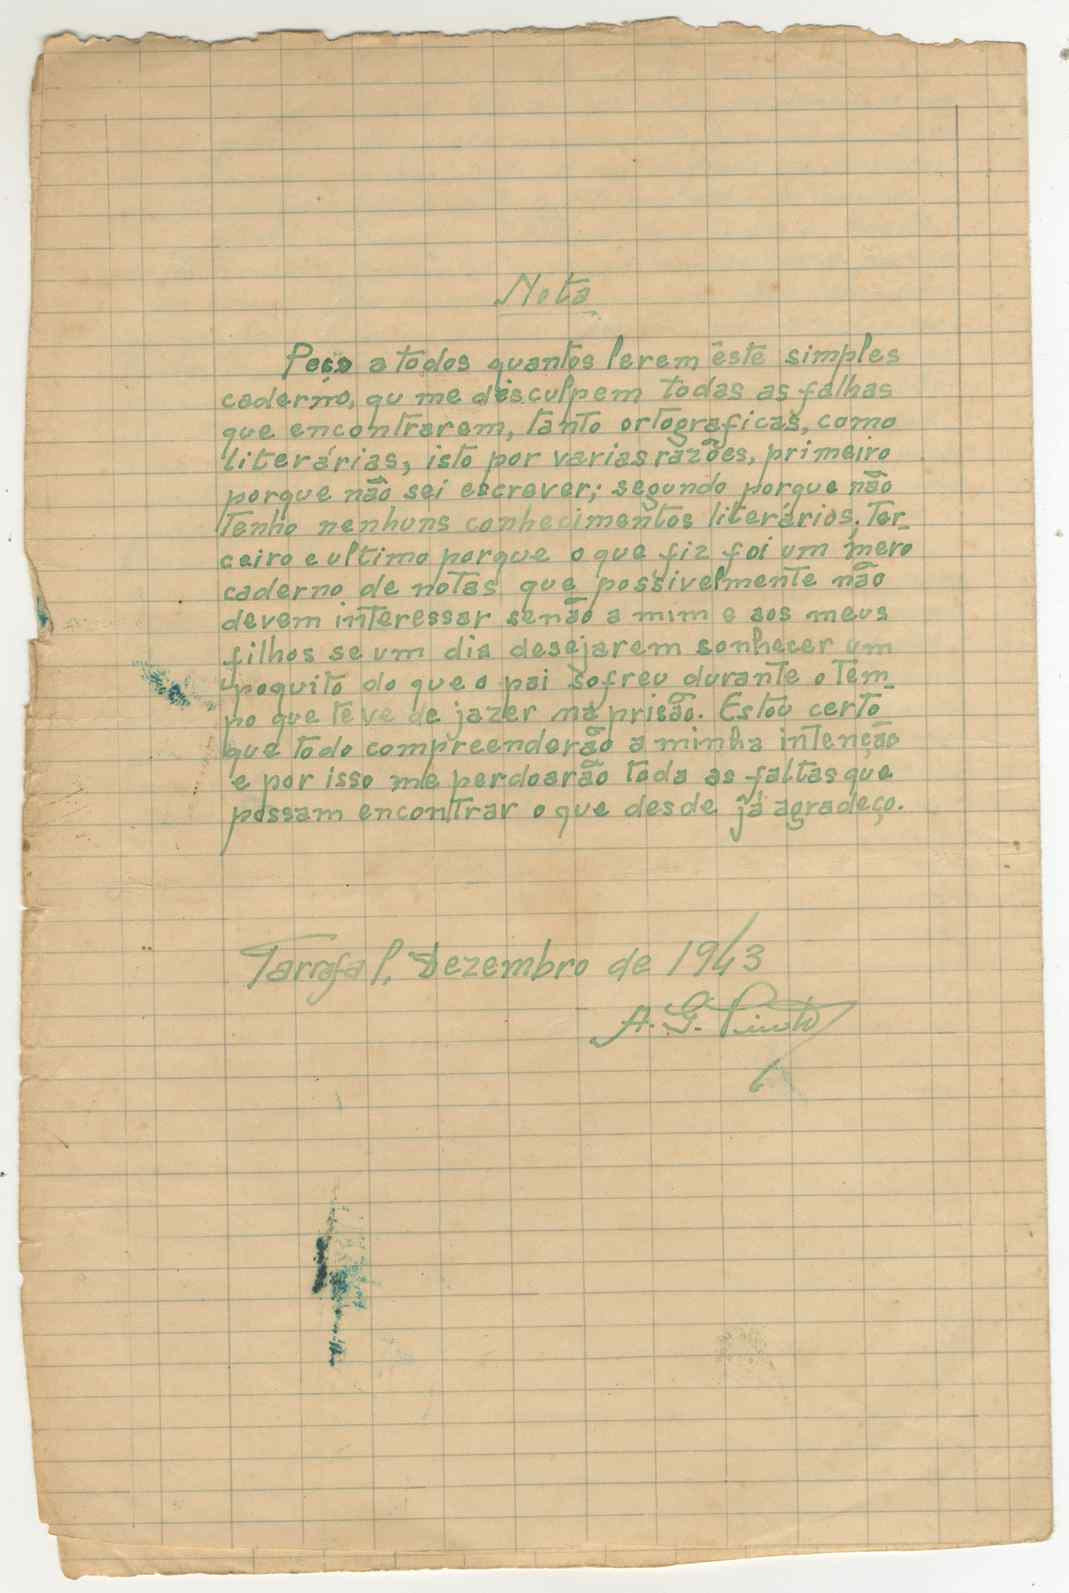 Nota
Peço a todos quantos lerem êste simples
caderno, qu me disculpem todas as falhas
que encontrarem, tanto ortograficas, como
literárias, isto por varias razões, primeiro
porque não sei escrever; segundo porque não
tenho nenhuns conhecimentos literários; ter-
ceiro e ultimo porque o que fiz foi um mero
caderno de notas que possivelmente não
devem interessar senão a mim e aos meus
filhos se um dia desejarem sonhecer um
poquito do que o pai sofreu durante o tem-
po que teve de jazer na prisão. Estou certo
que todo compreenderão a minha intenção
e por isso me perdoarão toda as faltas que
possam encontrar o que desde já agradeço.
Tarrafal, Dezembro de 1943
A. G. Pinto